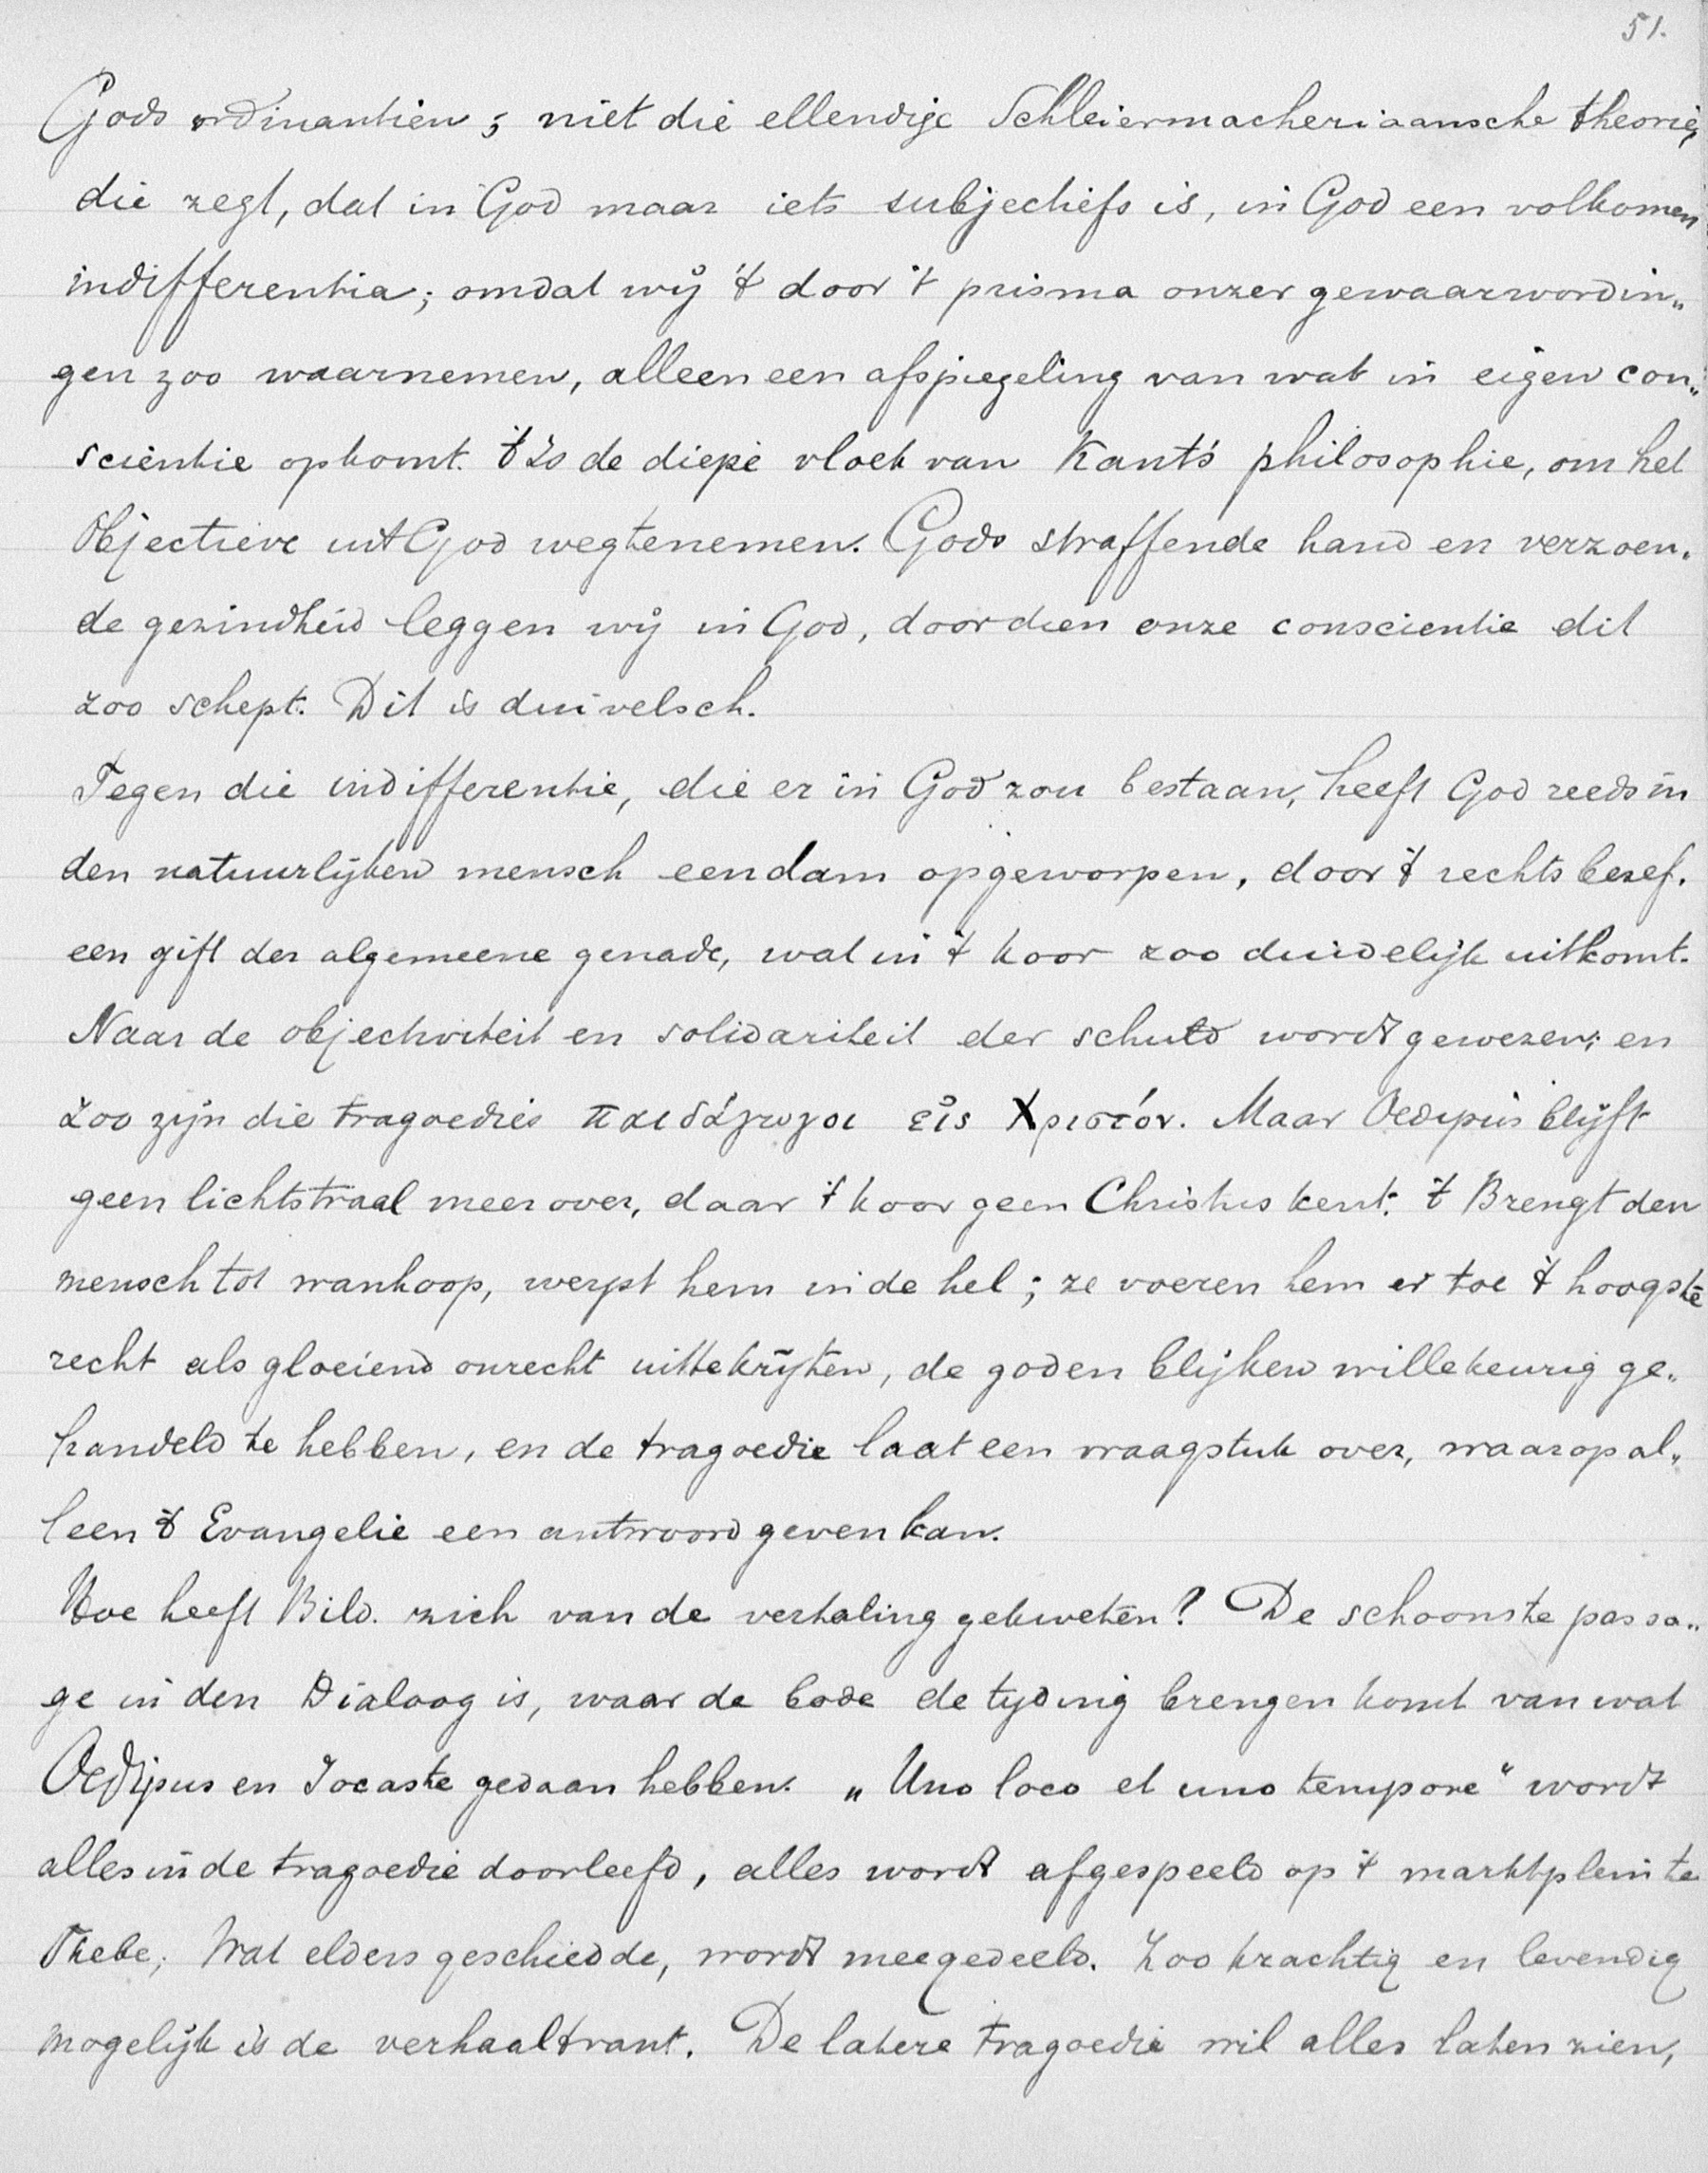 51.
Gods ordinantien; niet die ellendige Schleiermacheriaansche theorie,
die zegt, dat in God maar iets subjectiefs is, in God een volkomen
indifferentia; omdat wij 't door 't prisma onzer gewaarwordin„
gen zoo waarnemen, alleen een afspiegeling van wat in eigen con„
scientie opkomt. 't Is de diepe vloek van Kant's philosophie, om het
Objectieve uit God wegtenemen. Gods straffende hand en verzoen„
de gezindheid leggen wij in God, doordien onze conscientie dit
zoo schept. Dit is duivelsch.
Tegen die indifferentie, die er in God zou bestaan, heeft God reeds in
den natuurlijken mensch een dam opgeworpen, door 't rechtsbesef,
een gift der algemeene genade, wat in 't koor zoo duidelijk uitkomt.
Naar de objectiviteit en solidariteit der schuld wordt gewezen; en
zoo zijn die tragoedies παιδάγωγοι εἰς Χριστόν. Maar Oedipus blijft
geen lichtstraal meer over, daar 't koor geen Christus kent. 't Brengt den
mensch tot wanhoop, werpt hem in de hel; ze voeren hem er toe 't hoogste
recht als gloeiend onrecht uittekrijten, de goden blijken willekeurig ge„
handeld te hebben, en de tragoedie laat een vraagstuk over, waarop al„
leen 't Evangelie een antwoord geven kan.
Hoe heeft Bild. zich van de vertaling gekweten? De schoonste passa„
ge in den Dialoog is, waar de bode de tijding brengen komt van wat
Oedipus en Jocaste gedaan hebben. „Uno loco et uno tempore" wordt
alles in de tragoedie doorleefd, alles wordt afgespeeld op 't marktplein te
Thebe; Wat elders geschiedde, wordt meegedeeld. Zoo krachtig en levendig
mogelijk is de verhaaltrant. De latere tragoedie wil alles laten zien,